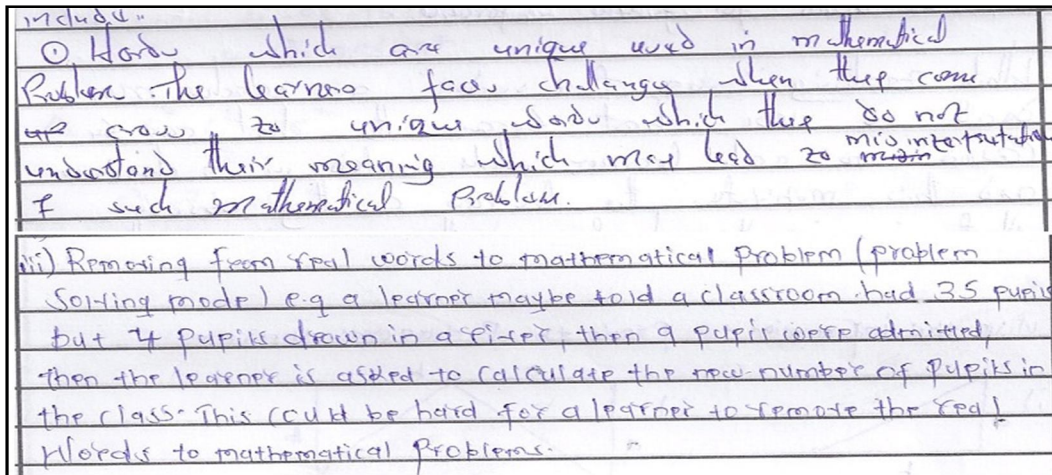 include:-
① Words which are unique used in mathematical
Problem. The learners faces challenges when they come
across to unique words which they do not
understand their meaning which may lead to misinterpretation
f such mathematical Problem.
iii) Removing from real words to mathematical problem (problem
Solving mode) e.g a learner maybe told a classroom had 35 pupils
but 4 pupils drown in a river, then 9 pupil were admitted,
then the learner is asked to calculate the new number of pupils in
the class. This could be hard for a learner to remove the real
Words to mathematical Problems.